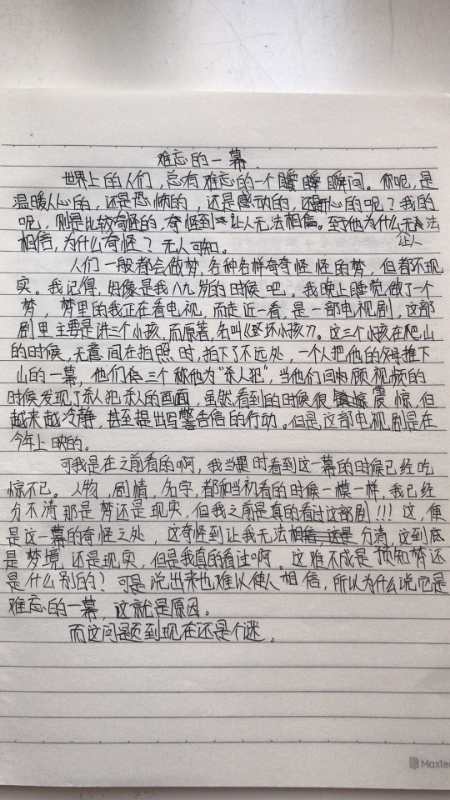 难忘的一幕
世界上的人们，总有难忘的一个瞬间。你呢，是
温暖人心的，还是恐怖的，还是感动的，还是开心的呢？我的
呢，则是比较奇怪的，奇怪到让人无法相信。至于他为什么无法
让人
相信，为什么奇怪？无人可知。
人们一般都会做梦，各种各样奇奇怪怪的梦，但都不现
实。我记得，好像是我八九岁的时候吧，我晚上睡觉做了个
梦，梦里的我正在看电视，而走近一看，是一部电视剧，这部
剧里主要是讲三个小孩，而原著，名叫《坏小孩》。这三个小孩在爬山
的时候，无意间在拍照时，拍下了不远处，一个人把他的父母推下
山的一幕，他们三个称他为“杀人犯”，当他们回顾视频的
时候发现了杀人犯杀人的画面，虽然看到的时候很震惊，但
越来越冷静，甚至提出写警告信的行动。但是，这部电视剧是在
今年上映的。
可我是在之前看的啊，我当时看到这一幕的时候已经吃
惊不已。人物，剧情，名字，都和当初看的时候一模一样，我已经
分不清那是梦还是现实，但我之前是真的看过这部剧！！！这，便
是这一幕的奇怪之处，这奇怪到让我无法分清，这到底
是梦境，还是现实，但是我真的看过啊。这难不成是预知梦还
是什么别的？可是说出来也难以使人相信，所以为什么说它是
难忘的一幕，这就是原因。
而这问题到现在还是个谜。